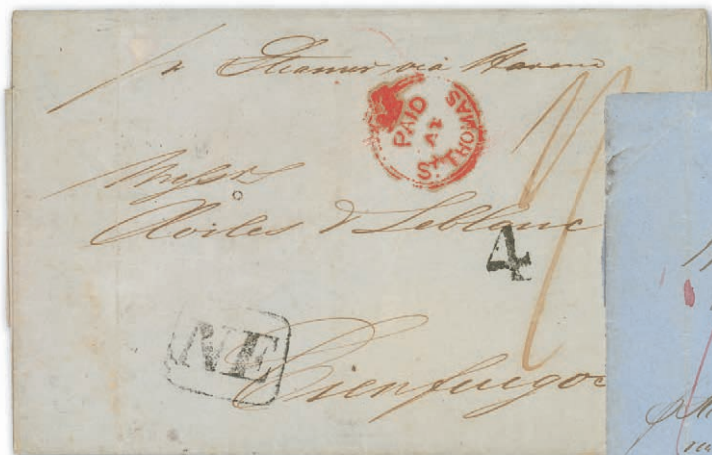 pr Steamer via Havana
PAID
AT
ST. THOMAS
Messrs
Aviles & Leblanc
4
NE
Cienfuegos